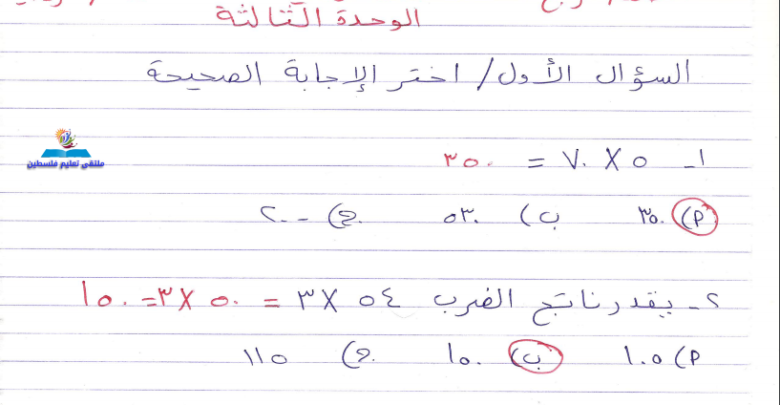 الوحدة الثالثة
السؤال الأول / اختر الإجابة الصحيحة
ملتقى تعليم فلسطين
١- ٥ × ٧٠ = ٣٥٠
أ) ٣٥٠ ب) ٥٣٠ ج) ٢٠٠
٢- يقدر ناتج الضرب ٥٤ × ٣ = ٥٠ × ٣ = ١٥٠
أ) ١٠٥ ب) ١٥٠ ج) ١١٥